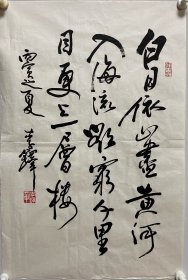 白日依山盡黄河
入海流欲窮千里
目更上一層樓
夏 李鐸